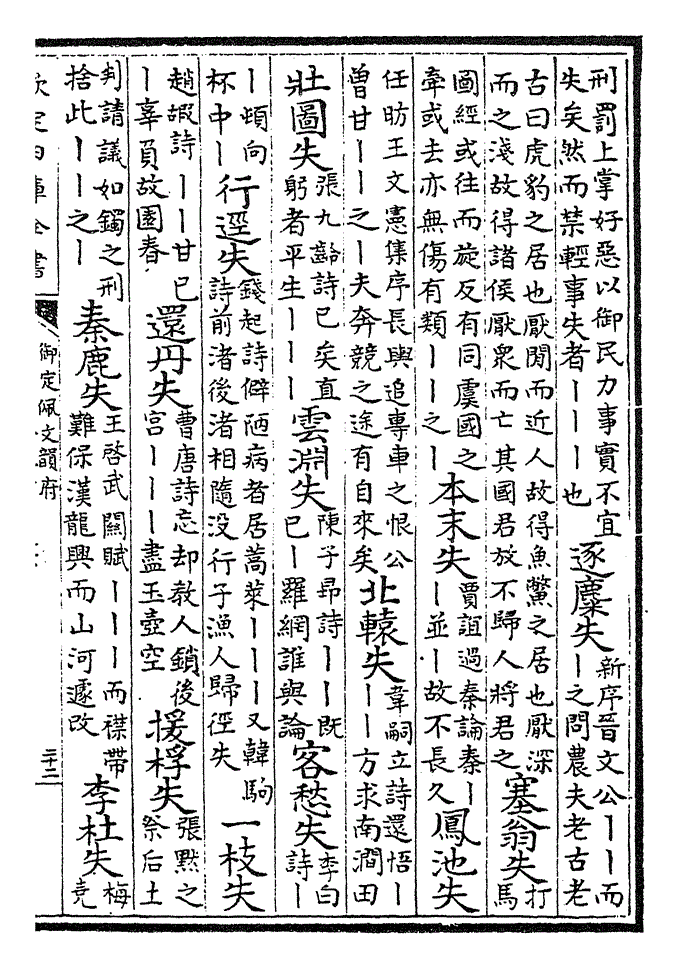 刑罰上掌好惡以御民力事實不宜
失矣然而禁輕事失者｜｜｜也
逐麋失
新序晉文公｜｜而
｜之問農夫老古老
古曰虎豹之居也厭閒而近人故得魚鱉之居也厭深
而之淺故得諸侯厭衆而亡其國君放不歸人將君之
塞翁失
打
馬
圖經或往而旋反有同虞國之
牽或去亦無傷有類｜｜之｜
本末失
賈誼過秦論秦｜
｜並｜故不長久
鳳池失
任昉王文憲集序長輿追專車之恨公
曾甘｜｜之｜夫奔競之途有自來矣
北轅失
韋嗣立詩還悟｜
｜｜方求南澗田
壯圖失
張九齡詩已矣直
躬者平生｜｜｜
雲淵失
陳子昻詩｜｜既
已｜羅網誰與論
客愁失
李白
詩｜
｜頓向
杯中｜
行逕失
錢起詩僻陋病者居蒿萊｜｜｜又韓駒
詩前渚後渚相隨没行子漁人歸徑失
一枝失
趙嘏詩｜｜甘已
｜辜負故園春
還丹失
曹唐詩忘却教人鎖後
宫｜｜｜盡玉壺空
援桴失
張黙之
祭后土
判請議如鐲之刑
捨此｜｜之｜
秦鹿失
王啓武關賦｜｜｜而襟帶
難保漢龍興而山河遽改
李杜失
梅
堯
欽定四庫全書
御定佩文韻府
三十二